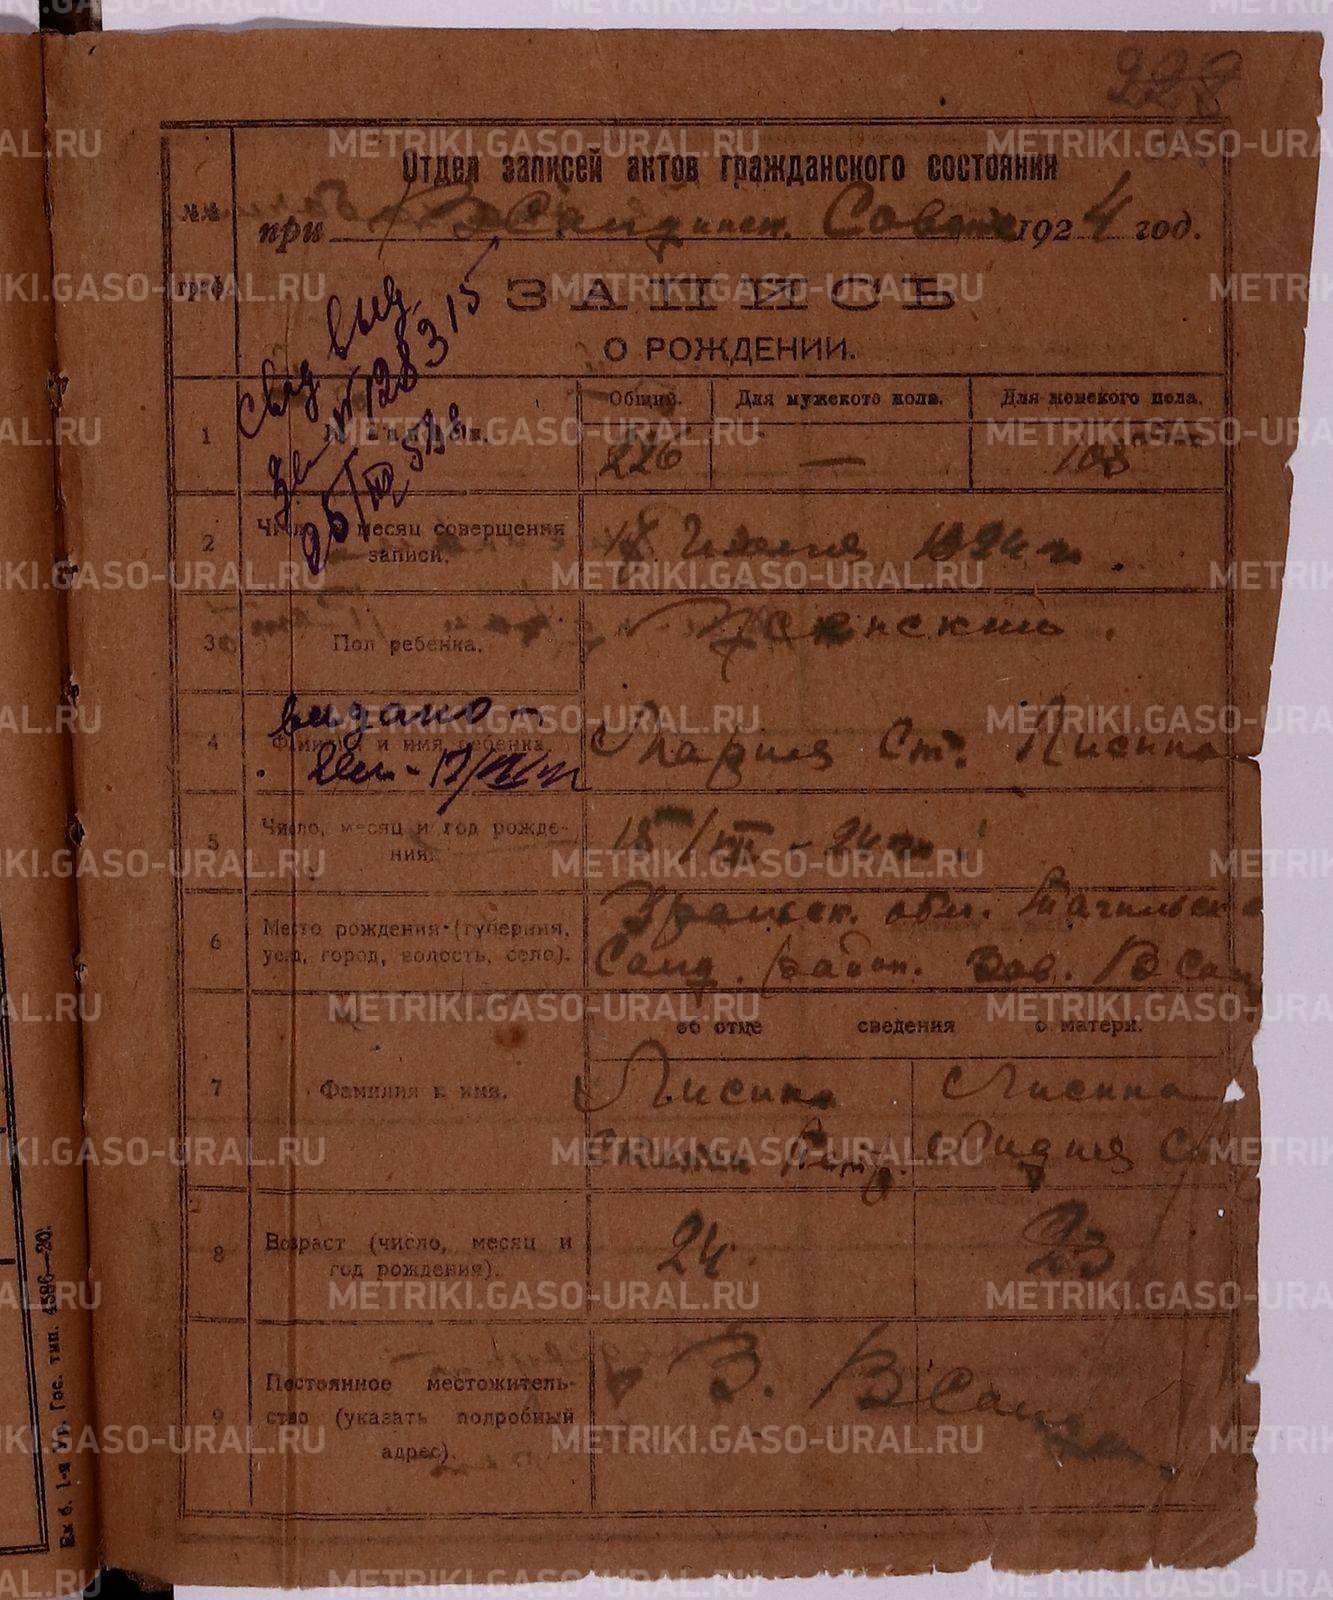 228
Отдел записей актов гражданского состояния
при В Салдинск. Совете 1924 год.
№№ граф
ЗАПИСЬ
О РОЖДЕНИИ.
свид выд.
№ 128315
1
Общий. Для мужского пола. Для женского пола.
226 — 108
2 Число и месяц совершения записи.
18 Июля 1924 г.
3 Пол ребенка.
Женский.
4 Фамилия и имя ребенка
выдано
Мария Ст. Лисина
5 Число, месяц и год рождения.
15/VII - 24 г.
6 Место рождения (губерния, уезд, город, волость, село).
Уральск. обл. Тагильск
Салд. район. зав. В Сал
об отце сведения о матери.
7 Фамилия и имя.
Лисин Лисина
Петр. Лидия
8 Возраст (число, месяц и год рождения).
24. 23
9 Постоянное местожительство (указать подробный адрес).
В. Салда
Ек б. 1-я Ур. Гос. тип. 4586—20.
METRIKI.GASO-URAL.RU